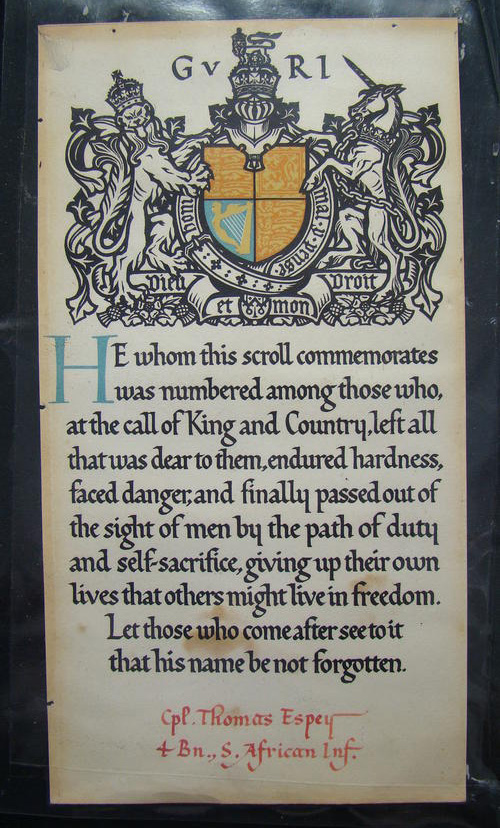 G V RI
honi soit qui mal y pense
Dieu et mon Droit
HE whom this scroll commemorates
was numbered among those who,
at the call of King and Country, left all
that was dear to them, endured hardness,
faced danger, and finally passed out of
the sight of men by the path of duty
and self-sacrifice, giving up their own
lives that others might live in freedom.
Let those who come after see to it
that his name be not forgotten.
Cpl. Thomas Espey
4 Bn., S. African Inf.